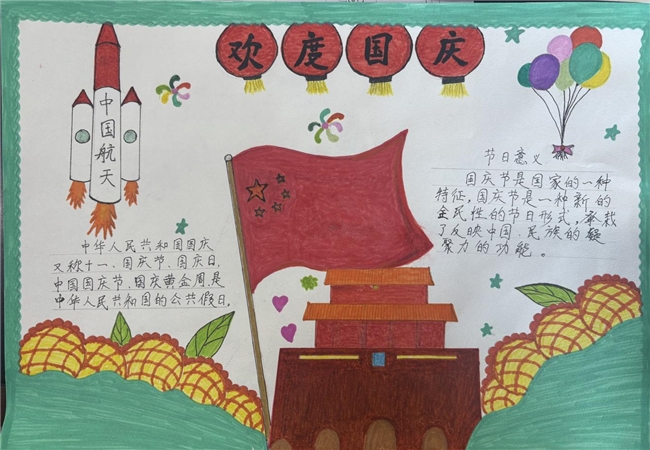 欢度国庆
中国航天
节日意义
国庆节是国家的一种
特征，国庆节是一种新的
全民性的节日形式，承载
了反映中国、民族的凝
聚力的功能。
中华人民共和国国庆
又称十一、国庆节、国庆日、
中国国庆节、国庆黄金周，是
中华人民共和国的公共假日。